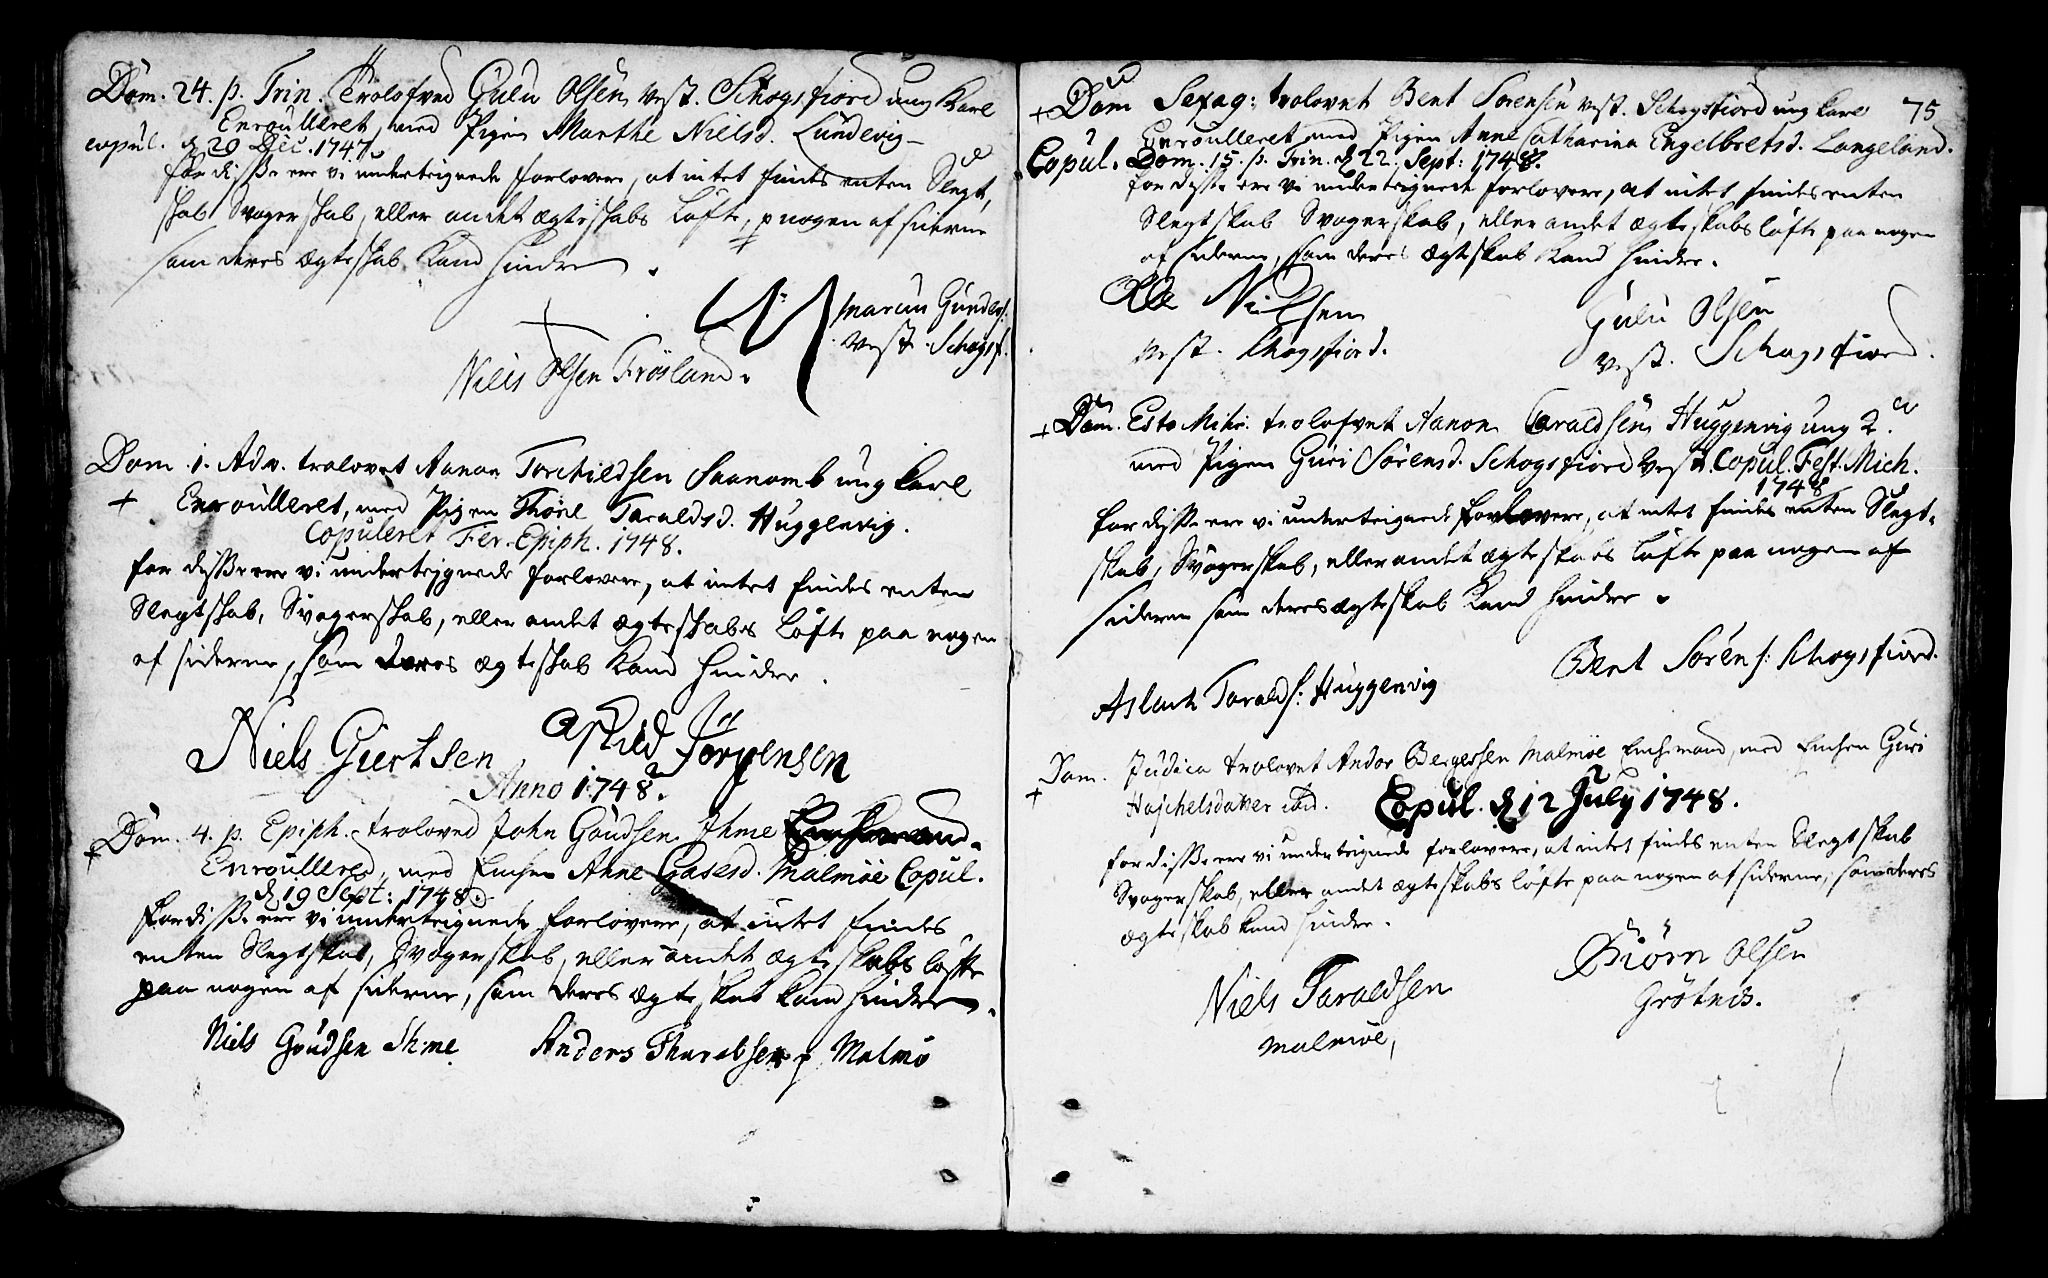 Dom. 24. p. Trin. Trolofved Gulu Olsen vest. Schogsfiord ung Karl
Enroulleret med Pigen Marthe Nielsd. Lundevig
copul. d 29 Dec. 1747.
for disse ere vi undertegnede forlovere, at intet findes enten Slegt,
skab Svogerskab, eller andet ægteskabs løfte, p nogen af siderne
som deres Ægteskab Kand hindre.
Marcus Gunders:
vest. Schogsf.
Niels Olsen Frøsland.
Dom. 1. Adv. trolovet Aanon Torchildsen Saanomb ung Karl
+ Enroulleret, med Pigen Thore Taraldsd. Huggenvig.
Copuleret Fer. Epiph. 1748.
for disse ere vi undertegnede forlovere, at intet findes enten
Slegtskab, Svogerskab, eller andet ægteskabs løfte paa nogen
af siderne, som deres ægteskab Kand hindre.
Niels Giertsen Jörgensen
Anno 1748.
+ Dom. 4. p. Epiph. troloved John Goudsen Ihme
Enroullered, med Enchen Anne Gasesd. Malmöe Copul.
d 19 Sept: 1748.
for disse ere vi undertegnede forlovere, at intet findes
enten Slegtskab, Svogerskab, eller andet ægteskabs løfte
paa nogen af siderne, som deres ægteskab kand hindre.
Niels Goudsen Ihme Anders Tharalsen Malmö
75
+ Dom Sexag: trolovet Bent Sorensen vest. Schogsfiord ung karl
Enroulleret med Pigen Anne Catharina Engelbretsd. Langeland.
Copul. Dom. 15. p. Trin. d 22. Sept: 1748.
for disse ere vi undertegnede forlovere, at intet findes enten
Slegtskab Svogerskab, eller andet ægteskabs løfte paa nogen
af siderne, som deres Ægteskab Kand hindre.
Ole Nielsen Gulu Olsen
vest. Schogsfiord. vest. Schogsfiord.
+ Dom. Esto Mihi: trolofvet Aanon Taraldsen Huggenvig ung
med Pigen Guri Sörensd. Schogsfiord vest. Copul. Fest. Mich.
1748
for disse ere vi undertegnede forlovere, at intet findes enten Slegt-
skab, Svogerskab, eller andet ægteskabs løfte paa nogen af
siderne som deres ægteskab Kand hindre.
Bent Sörens: Schogsfiord.
Aslach Taralds: Huggenvig
+ Dom. Judica trolovet Andor Bergessen Malmöe Enchemand, med Enchen Guri
Haschelsdatter ibid. Copul. d 12 July 1748.
for disse ere vi undertegnede forlovere, at intet findes enten Slegtskab
Svogerskab, eller andet ægteskabs løfte paa nogen af siderne, som deres
ægteskab kand hindre.
Niels Taraldsen Biörn Olsen
Malmöe, Grötnes.